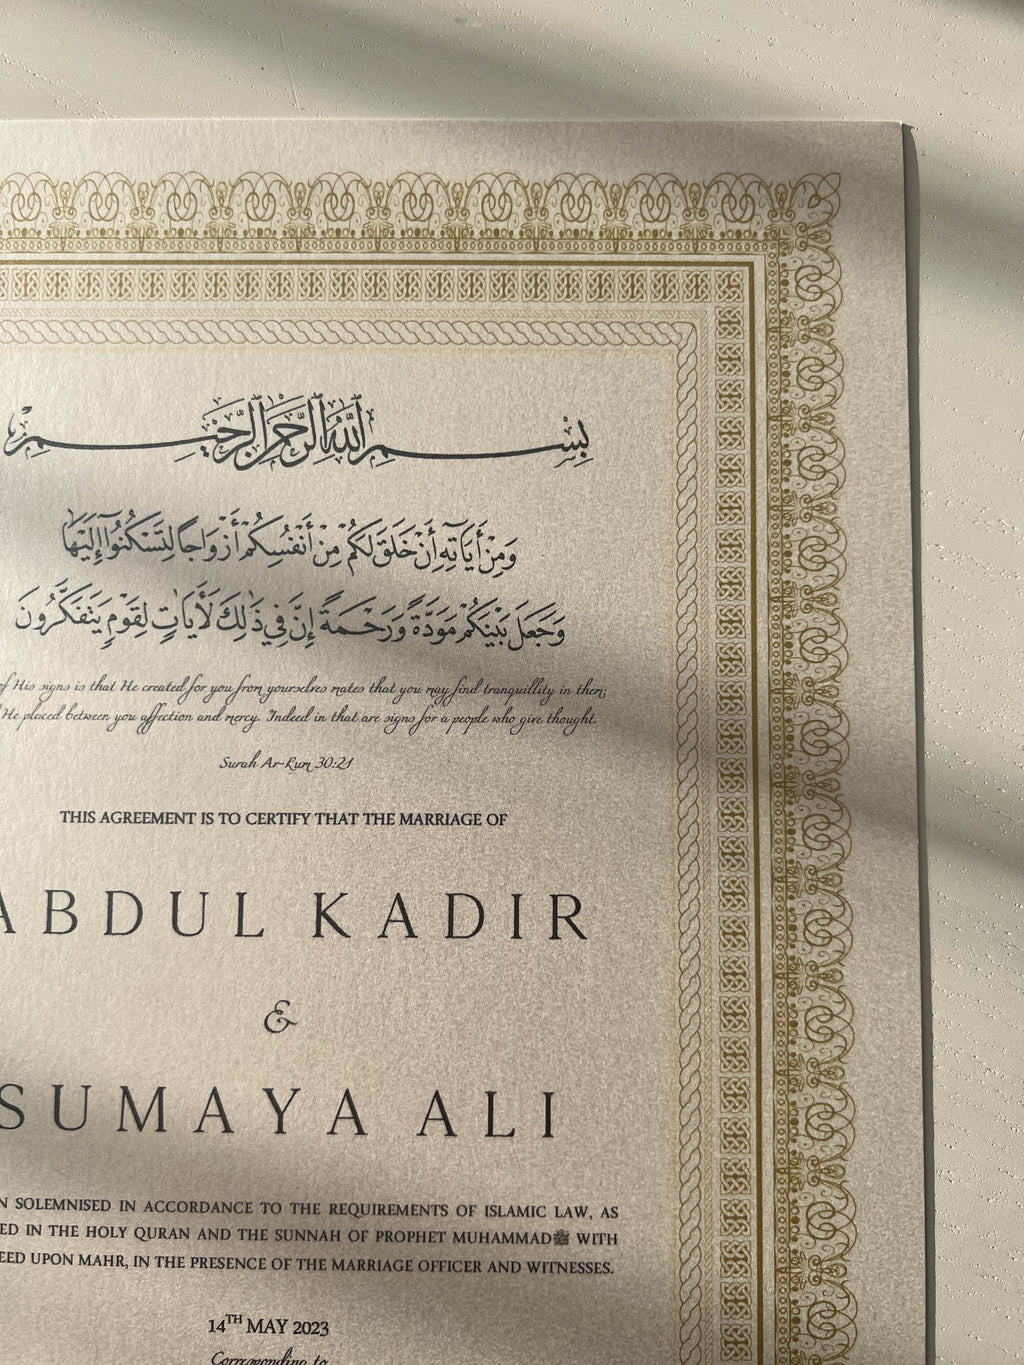 بِسْمِ اللَّهِ الرَّحْمَٰنِ الرَّحِيمِ
وَمِنْ أَيَاتِهِ أَنْ خَلَقَ لَكُمْ مِنْ أَنْفُسِكُمْ أَزْوَاجًا لِتَسْكُنُوا إِلَيْهَا
وَجَعَلَ بَيْنَكُمْ مَوَدَّةً وَرَحْمَةً إِنَّ فِي ذَٰلِكَ لَأَيَاتٍ لِقَوْمٍ يَتَفَكَّرُونَ
of His signs is that He created for you from yourselves mates that you may find tranquillity in them;
He placed between you affection and mercy. Indeed in that are signs for a people who give thought.
Surah Ar-Rum 30:21
THIS AGREEMENT IS TO CERTIFY THAT THE MARRIAGE OF
ABDUL KADIR
&
SUMAYA ALI
N SOLEMNISED IN ACCORDANCE TO THE REQUIREMENTS OF ISLAMIC LAW, AS
ED IN THE HOLY QURAN AND THE SUNNAH OF PROPHET MUHAMMADﷺ WITH
EED UPON MAHR, IN THE PRESENCE OF THE MARRIAGE OFFICER AND WITNESSES.
14TH MAY 2023
Corresponding to